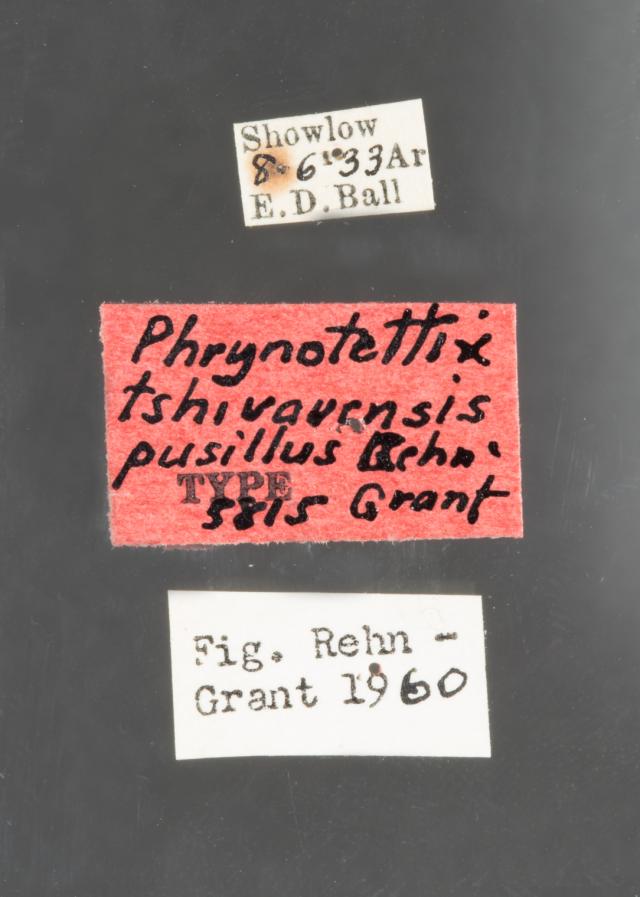 Showlow
8-6-33 Ar
E.D.Ball
Phrynotettix
tshivavensis
pusillus Rehn-
TYPE
5815 Grant
Fig. Rehn -
Grant 1960